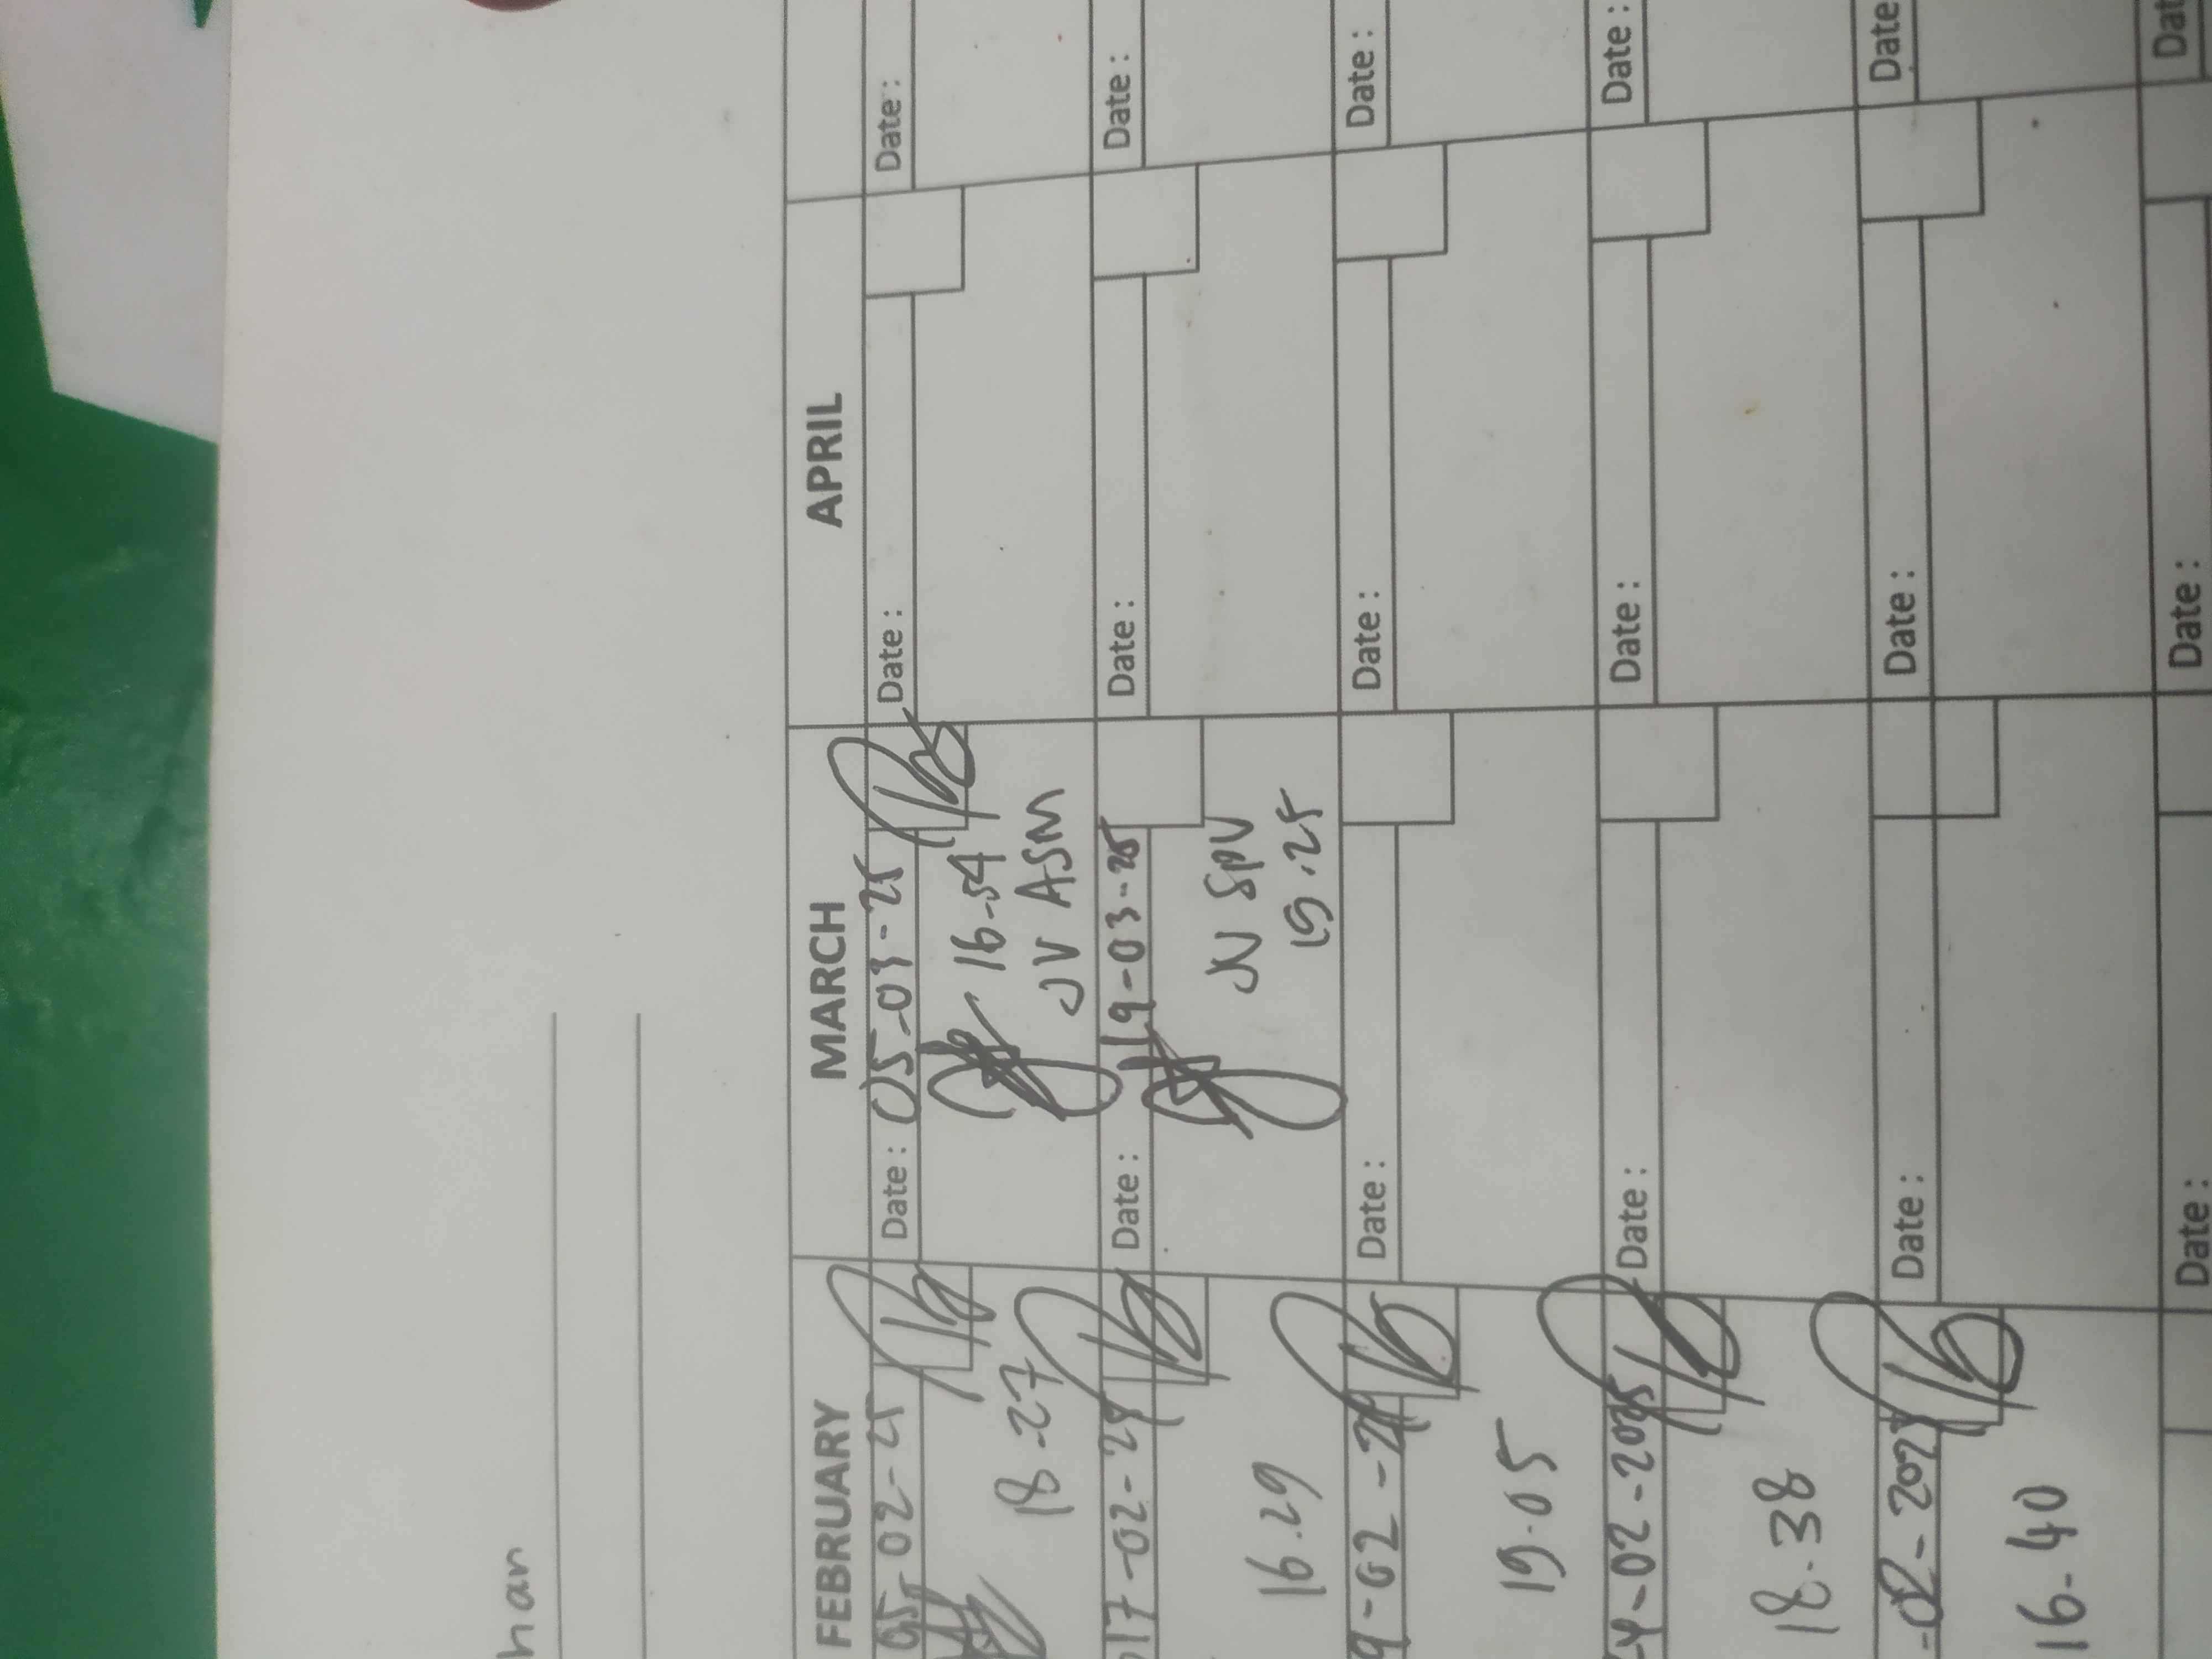 han
FEBRUARY MARCH APRIL
05-02-25 Date : 05-03-25 Date : Date :
18.27 16-54
JV ASM
17-02-25 Date : 19-03-25 Date : Date :
16.29 JV SPV
19.25
9-02-25 Date : Date : Date :
19.05
4-02-2025 Date : Date : Date :
18.38
-02-2025 Date : Date : Date
16-40
Date : Date : Dat